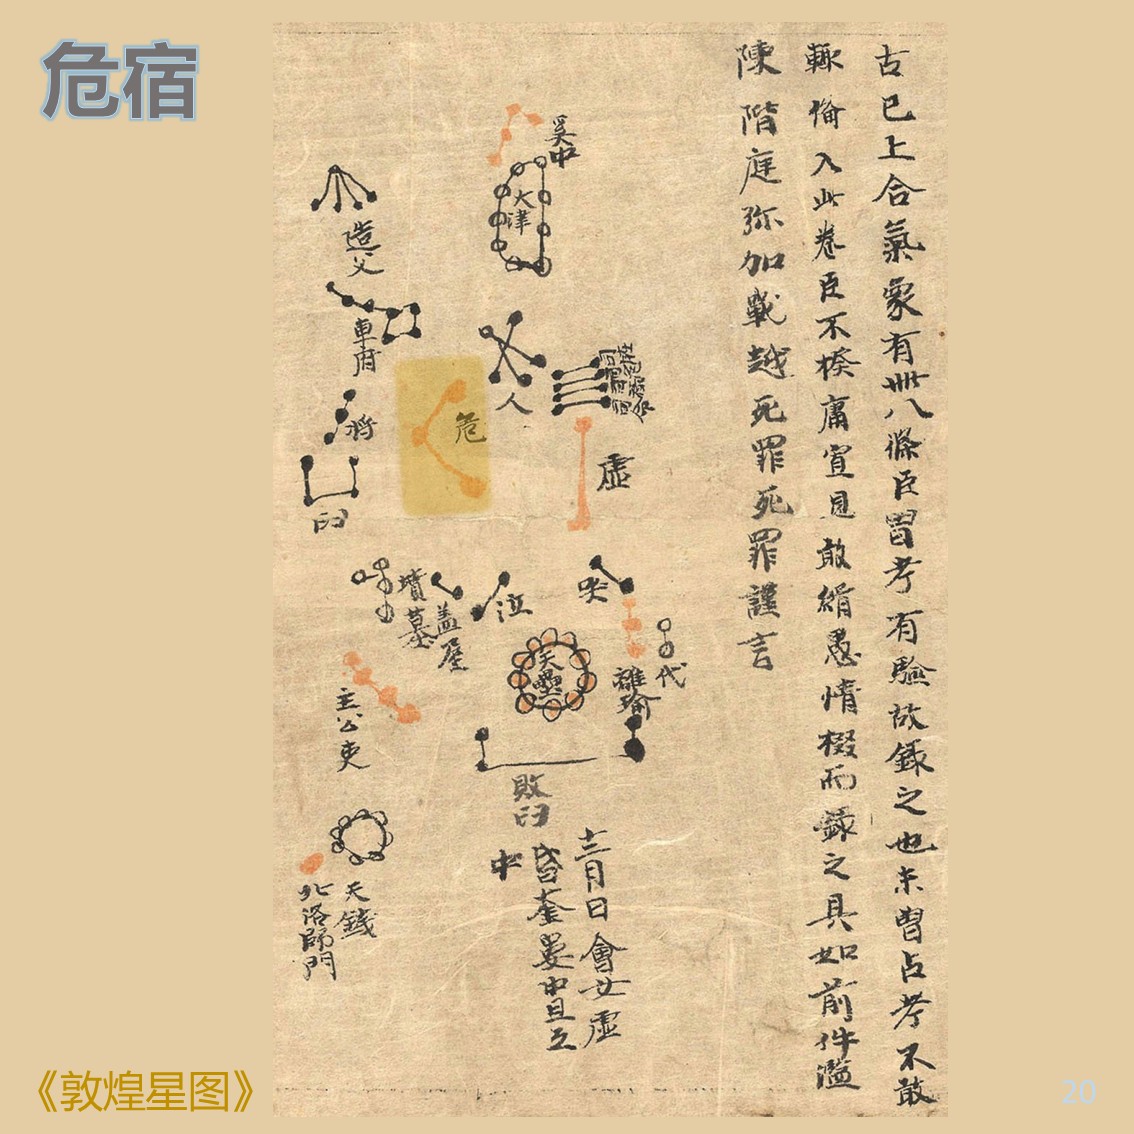 危宿
古已上合氣象有卌八條臣曾考有驗故錄之也未曾占考不敢
輒備入此卷臣不揆庸冥見敢緝愚情掇而錄之具如前件濫
陳階庭弥加戰越死罪死罪謹言
奚中
天津
造父
車府
人
將
危
虛
臼
哭
泣
墳墓
蓋屋
天壘
代
離瑜
主公吏
敗臼
天錢
北落師門
十二月日會女虛
昏奎婁中旦互
中
《敦煌星图》
20